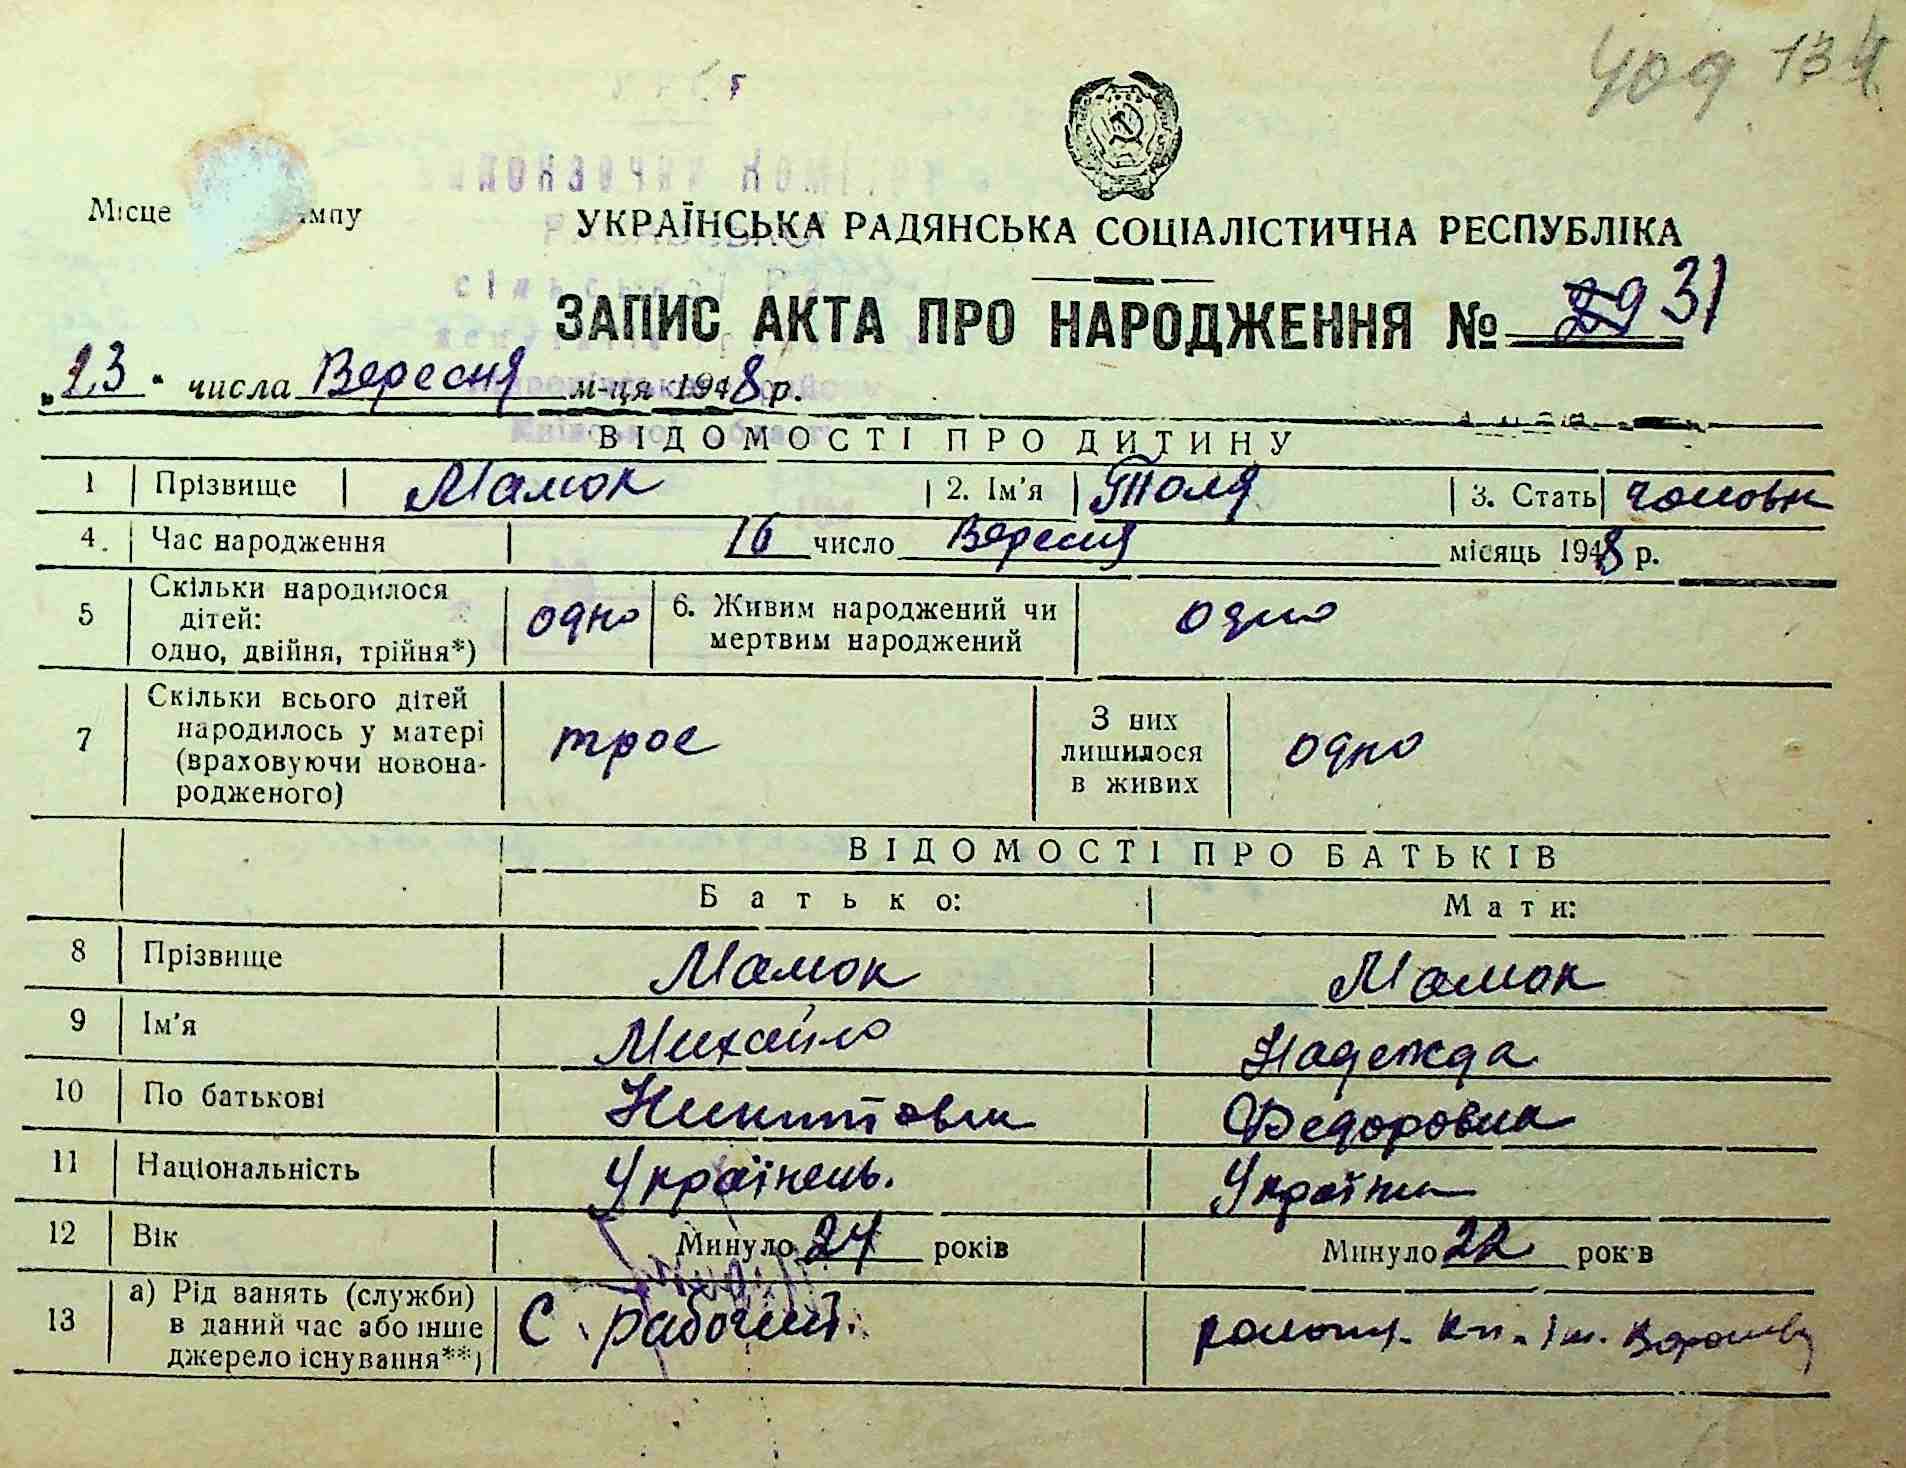 134
Місце
УКРАЇНСЬКА РАДЯНСЬКА СОЦІАЛІСТИЧНА РЕСПУБЛІКА
ЗАПИС АКТА ПРО НАРОДЖЕННЯ № 29 31
„23" числа Вересня м-ця 1948 р.
ВІДОМОСТІ ПРО ДИТИНУ
1 Прізвище Мамок 2. Ім'я Толя 3. Стать чоловіч
4. Час народження 16 число Вересня місяць 1948 р.
5 Скільки народилося дітей: одно, двійня, трійня*) одно 6. Живим народжений чи мертвим народжений одно
7 Скільки всього дітей народилось у матері (враховуючи новонародженого) троє З них лишилося в живих одно
ВІДОМОСТІ ПРО БАТЬКІВ
Батько: Мати:
8 Прізвище Мамок Мамок
9 Ім'я Михайло Надежда
10 По батькові Никитович Федоровна
11 Національність Українець. Українка
12 Вік Минуло 24 років Минуло 22 років
13 а) Рід занять (служби) в даний час або інше джерело існування**) С рабочий. кп. Ім.